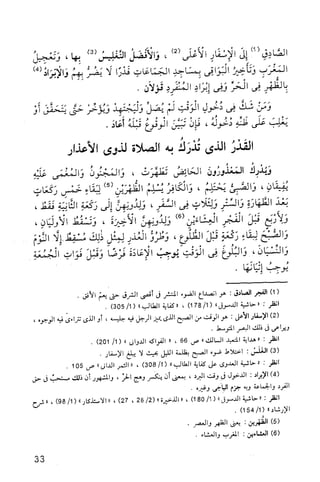 الصَّادِقِ (1) إِلَى الْإِسْفَارِ الْأَعْلَى (2) ، وَالْأَفْضَلُ التَّغْلِيسُ (3) بِهَا ، وَتَعْجِيلُ
الْمَغْرِبِ وَتَأْخِيرُ الْبَوَاقِي بِمَسَاجِدِ الْجَمَاعَاتِ قَدْرًا لَا يَضُرُّ بِهِمْ وَالْإِبْرَادُ (4)
بِالظُّهْرِ فِي الْحَرِّ وَفِي إِبْرَادِ الْمُنْفَرِدِ قَوْلَانِ .
وَمَنْ شَكَّ فِي دُخُولِ الْوَقْتِ لَمْ يُصَلِّ وَلْيَجْتَهِدْ وَيُؤَخِّرْ حَتَّى يَتَحَقَّقَ أَوْ
يَغْلِبَ عَلَى ظَنِّهِ دُخُولُهُ ، فَإِنْ تَبَيَّنَ الْوُقُوعُ قَبْلَهُ أَعَادَ .
القَدْرُ الذي تُدْرَكُ به الصلاة لذوى الأعذار
وَيُدْرِكُ الْمَعْذُورُونَ الْحَائِضُ تَطْهُرُ ، وَالْمَجْنُونُ وَالْمُغْمَى عَلَيْهِ
يُفِيقَانِ ، وَالصَّبِيُّ يَحْتَلِمُ ، وَالْكَافِرُ يُسْلِمُ الظُّهْرَيْنِ (5) لِبَقَاءِ خَمْسِ رَكَعَاتٍ
بَعْدَ الطَّهَارَةِ وَالسَّتْرِ وَلِثَلَاثٍ فِي السَّفَرِ ، وَلِدُونِهِنَّ إِلَى رَكْعَةٍ الثَّانِيَةَ فَقَطْ ،
وَلِأَرْبَعٍ قَبْلَ الْفَجْرِ الْعِشَاءَيْنِ (6) وَلِدُونِهِنَّ الْأَخِيرَةَ ، وَتَسْقُطُ الْأُولَيَانِ ،
وَالصُّبْحَ لِبَقَاءِ رَكْعَةٍ قَبْلَ الطُّلُوعِ ، وَطُرُوُّ الْعُذْرِ لِمِثْلِ ذَلِكَ مُسْقِطٌ إِلَّا النَّوْمَ
وَالنِّسْيَانَ ، وَالْبُلُوغُ فِي الْوَقْتِ يُوجِبُ الْإِعَادَةَ فَرْضًا وَقَبْلَ فَوَاتِ الْجُمُعَةِ
يُوجِبُ إِتْيَانَهَا .
(1) الفجر الصادق : هو انصداع الضوء المنتشر في أقصى الشرق حتى يعم الأفق .
انظر : « حاشية الدسوقي » (1/ 178) ، « كفاية الطالب » (1/ 305) .
(2) الإسفار الأعلى : هو الوقت من الصبح الذي يميز الرجل فيه جليسه ، أو الذي تتراءى فيه الوجوه ،
ويراعى في ذلك البصر المتوسط .
انظر : « هداية المتعبد السالك » ص 66 ، « الفواكه الدواني » (1/ 201) .
(3) الغَلَسُ : اختلاط ضوء الصبح بظلمة الليل بحيث لا يبلغ الإسفار .
انظر : « حاشية العدوي على كفاية الطالب » (1/ 308) ، « الثمر الداني » ص 105 .
(4) الإبراد : الدخول في وقت البرد ، بمعنى أن ينكسر وهج الحرِّ ، والمشهور أن ذلك مستحبٌّ في حق
الفرد والجماعة وبه جزم الباجي وغيره .
انظر : « حاشية الدسوقي » (1/ 180) ، « الذخيرة » (2/ 26، 27) ، « الاستذكار » (1/ 98) ، « شرح
الإرشاد » (1/ 154) .
(5) الظهرين : بمعنى الظهر والعصر .
(6) العشاءين : المغرب والعشاء .
33